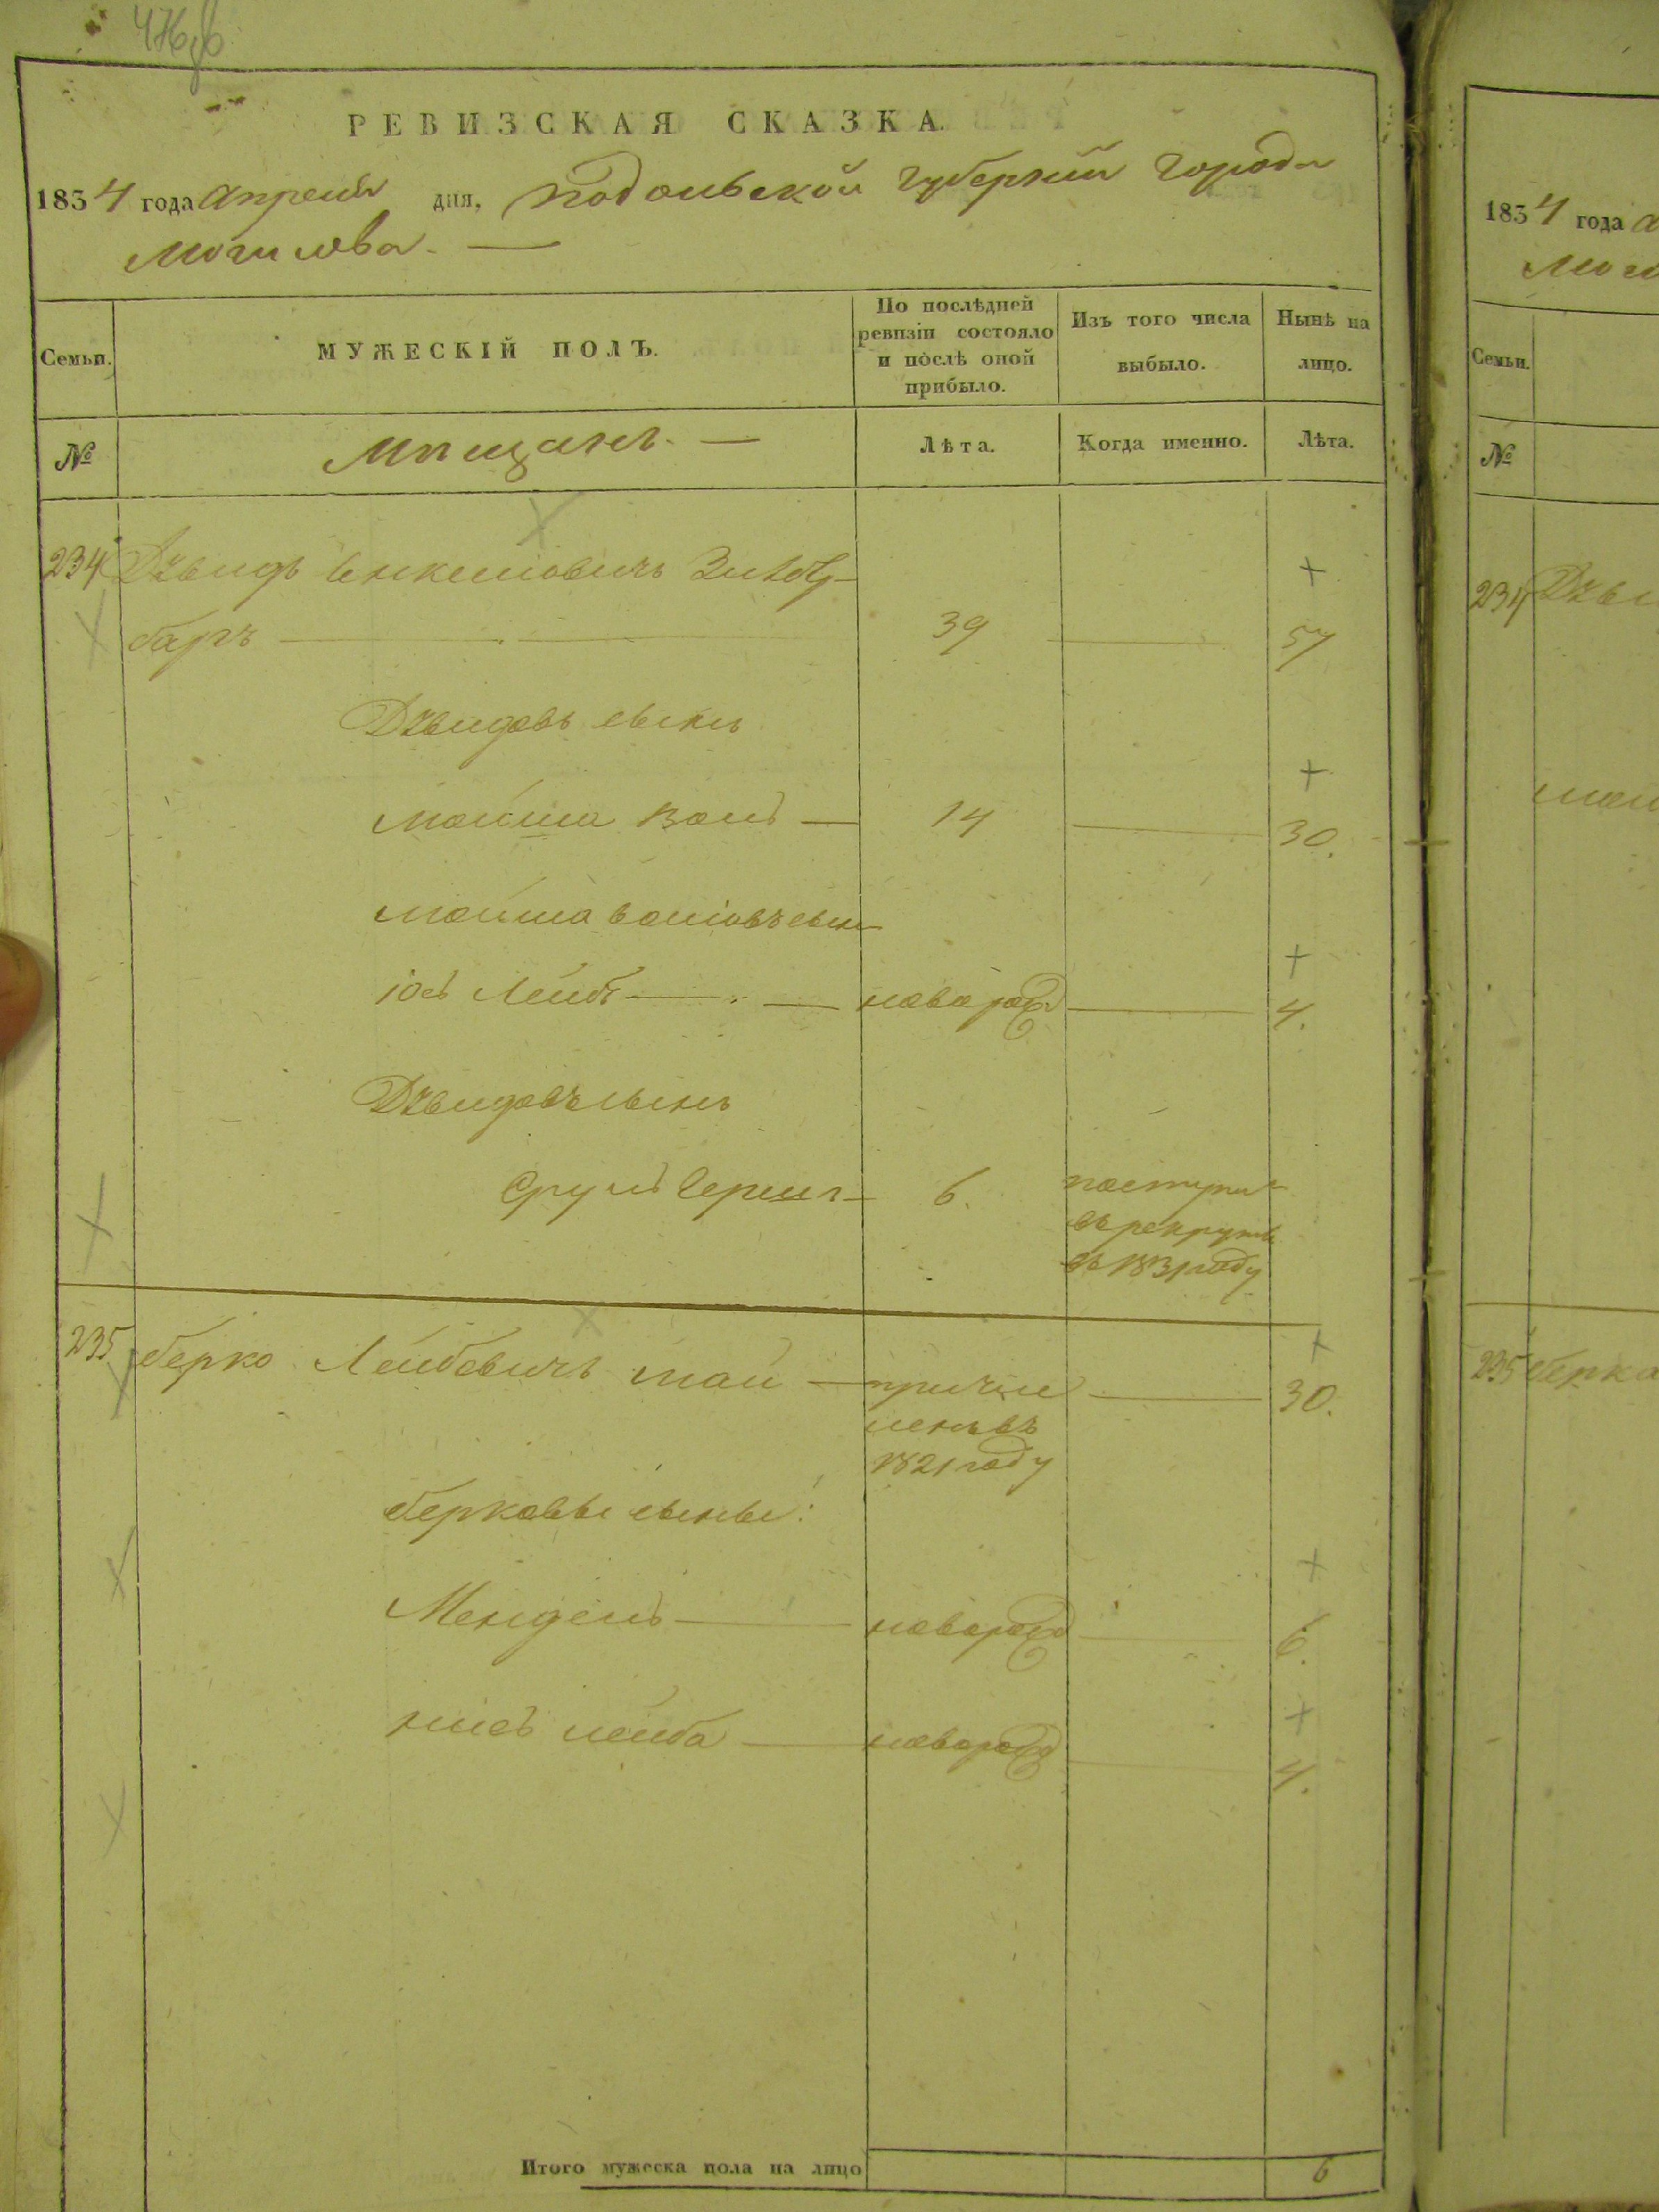 РЕВИЗСКАЯ СКАЗКА.
1834 года Апреля дня, Подольской губернии города
Могилева. —
Семьи.
МУЖЕСКІЙ ПОЛЪ.
По послѣдней ревизіи состояло и послѣ оной прибыло.
Изъ того числа выбыло.
Нынѣ на лицо.
№
Мѣщанъ. —
Лѣта.
Когда именно.
Лѣта.
234
баръ — 39 — 57
Майша Волъ — 14 — 30.
Майша Воліовъ сынъ
Іосъ Лейбъ — новорож — 4.
Срулъ Гершъ — 6. поступил
въ рекруты
въ 1831 году
235 Берко Лейбовичъ — причис — 30.
ленъ въ
1821 году
Берковы сыны:
Мендель — новорожд — 6.
лейба — новорожд — 4.
Итого мужеска пола на лицо 6
1834 года А
Семьи.
№
234
235 Берко